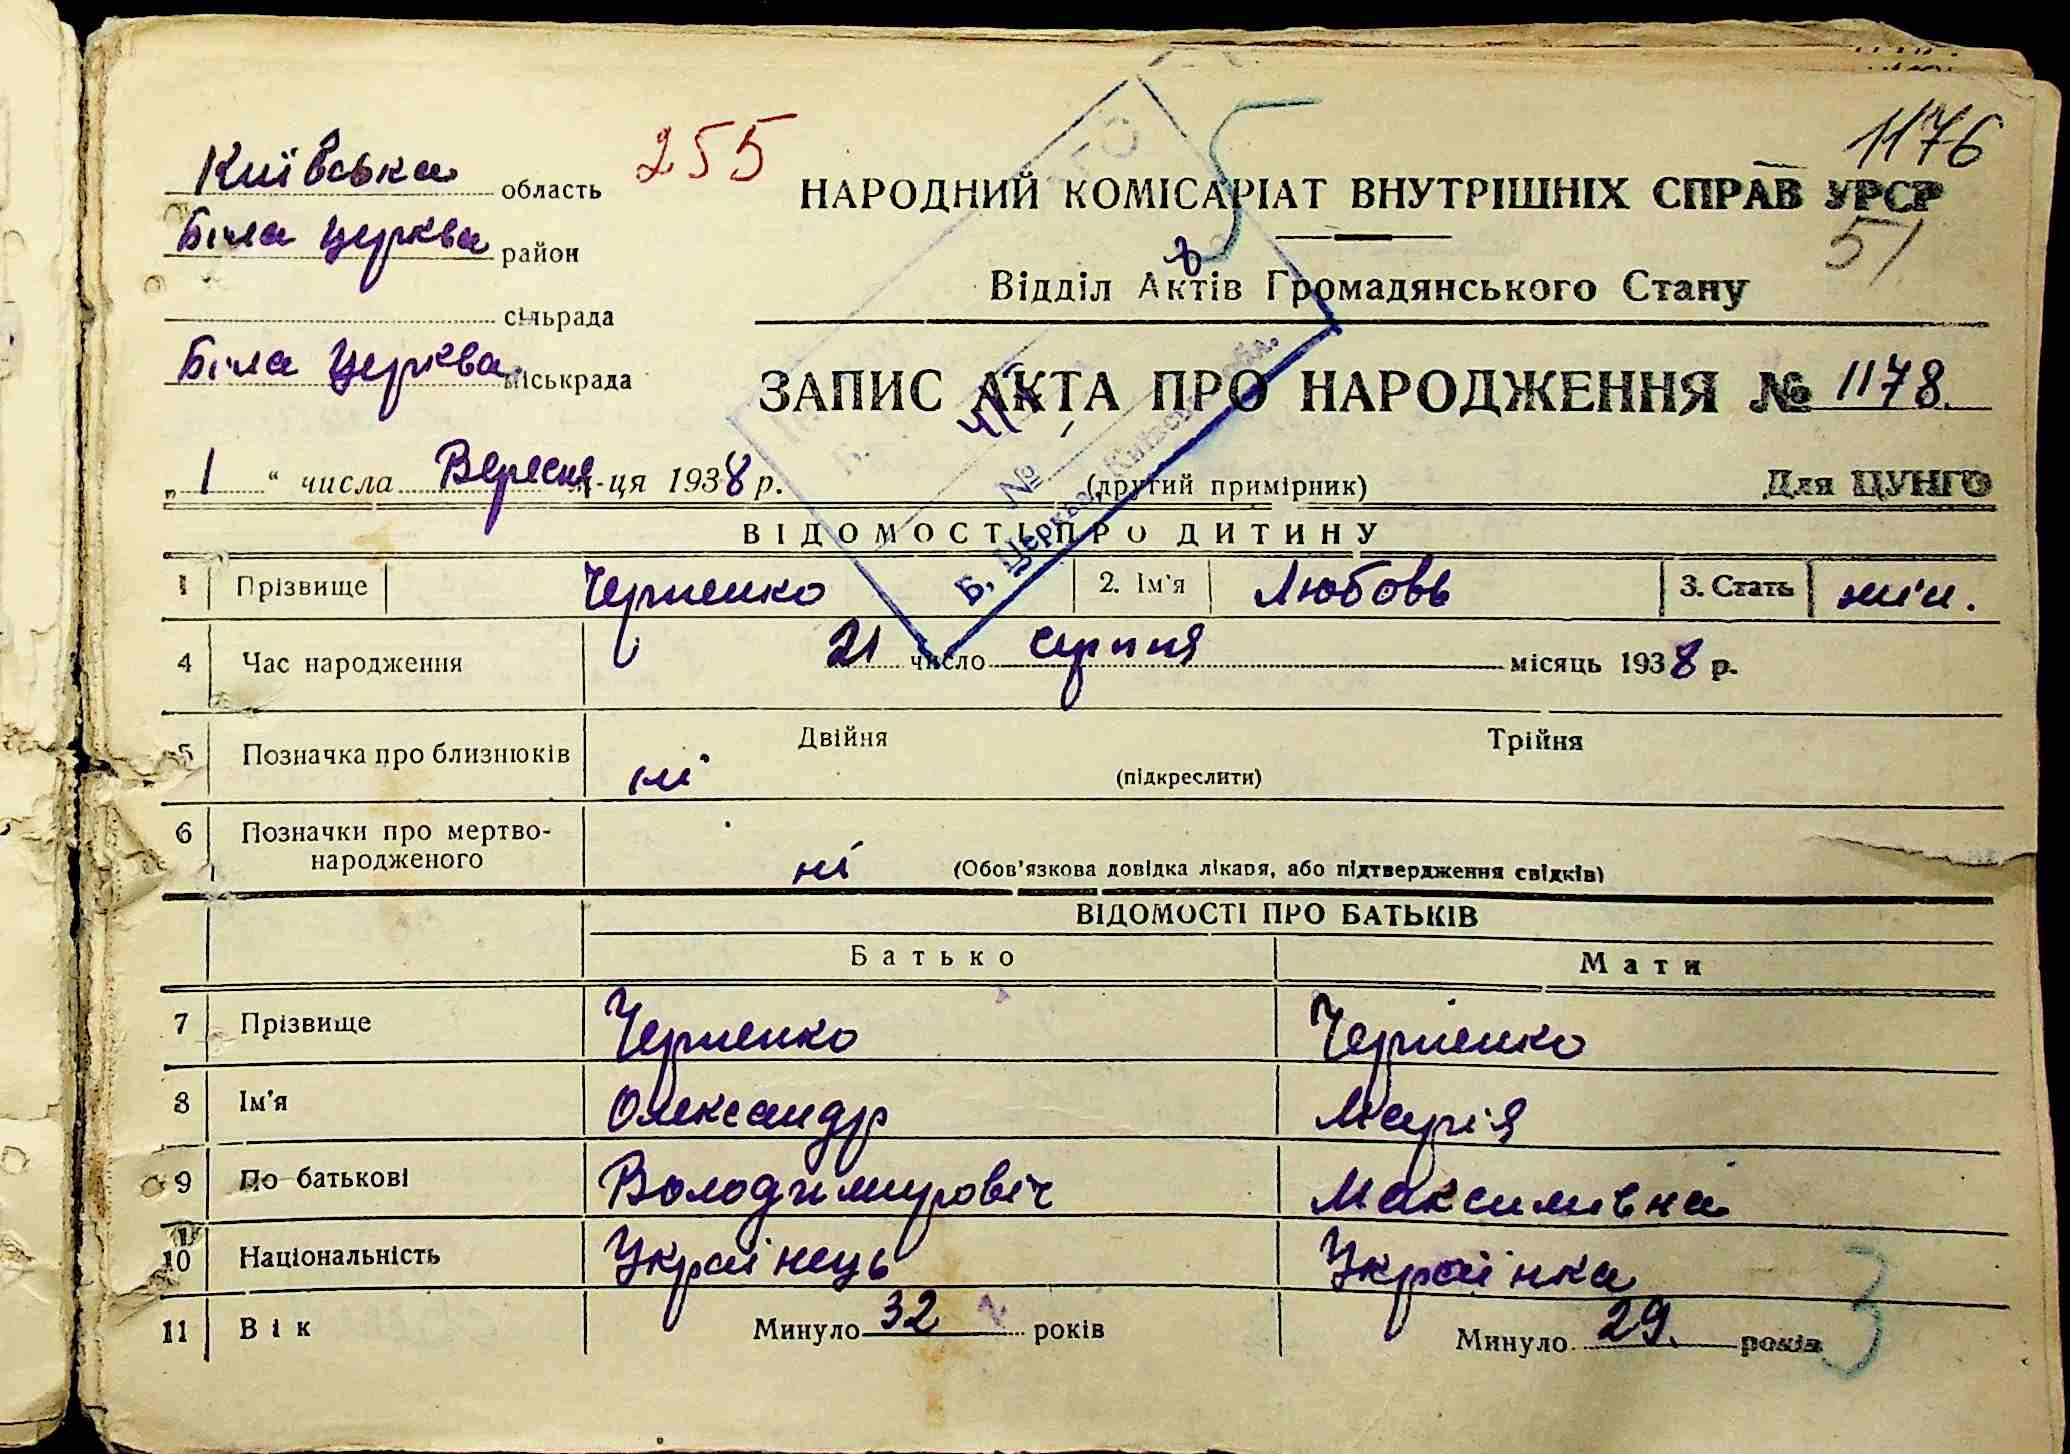 Київська область 255
1176
НАРОДНИЙ КОМІСАРІАТ ВНУТРІШНІХ СПРАВ УРСР
Біла Церква район
51
Відділ Актів Громадянського Стану
сільрада
Біла Церква міськрада
ЗАПИС АКТА ПРО НАРОДЖЕННЯ № 1178.
„ 1 “ числа Вересня м-ця 1938 р. (другий примірник) Для ЦУНГО
ВІДОМОСТІ ПРО ДИТИНУ
1 Прізвище Черненко 2. Ім'я Любовь 3. Стать жін.
4 Час народження 21 число серпня місяць 1938 р.
5 Позначка про близнюків ні Двійня Трійня
(підкреслити)
6 Позначки про мертво-
народженого ні (Обов'язкова довідка лікаря, або підтвердження свідків)
ВІДОМОСТІ ПРО БАТЬКІВ
Батько Мати
7 Прізвище Черненко Черненко
8 Ім'я Олександр Марія
9 По батькові Володимировіч Максимівна
10 Національність Українець Українка
11 Вік Минуло 32 років Минуло 29. років
3